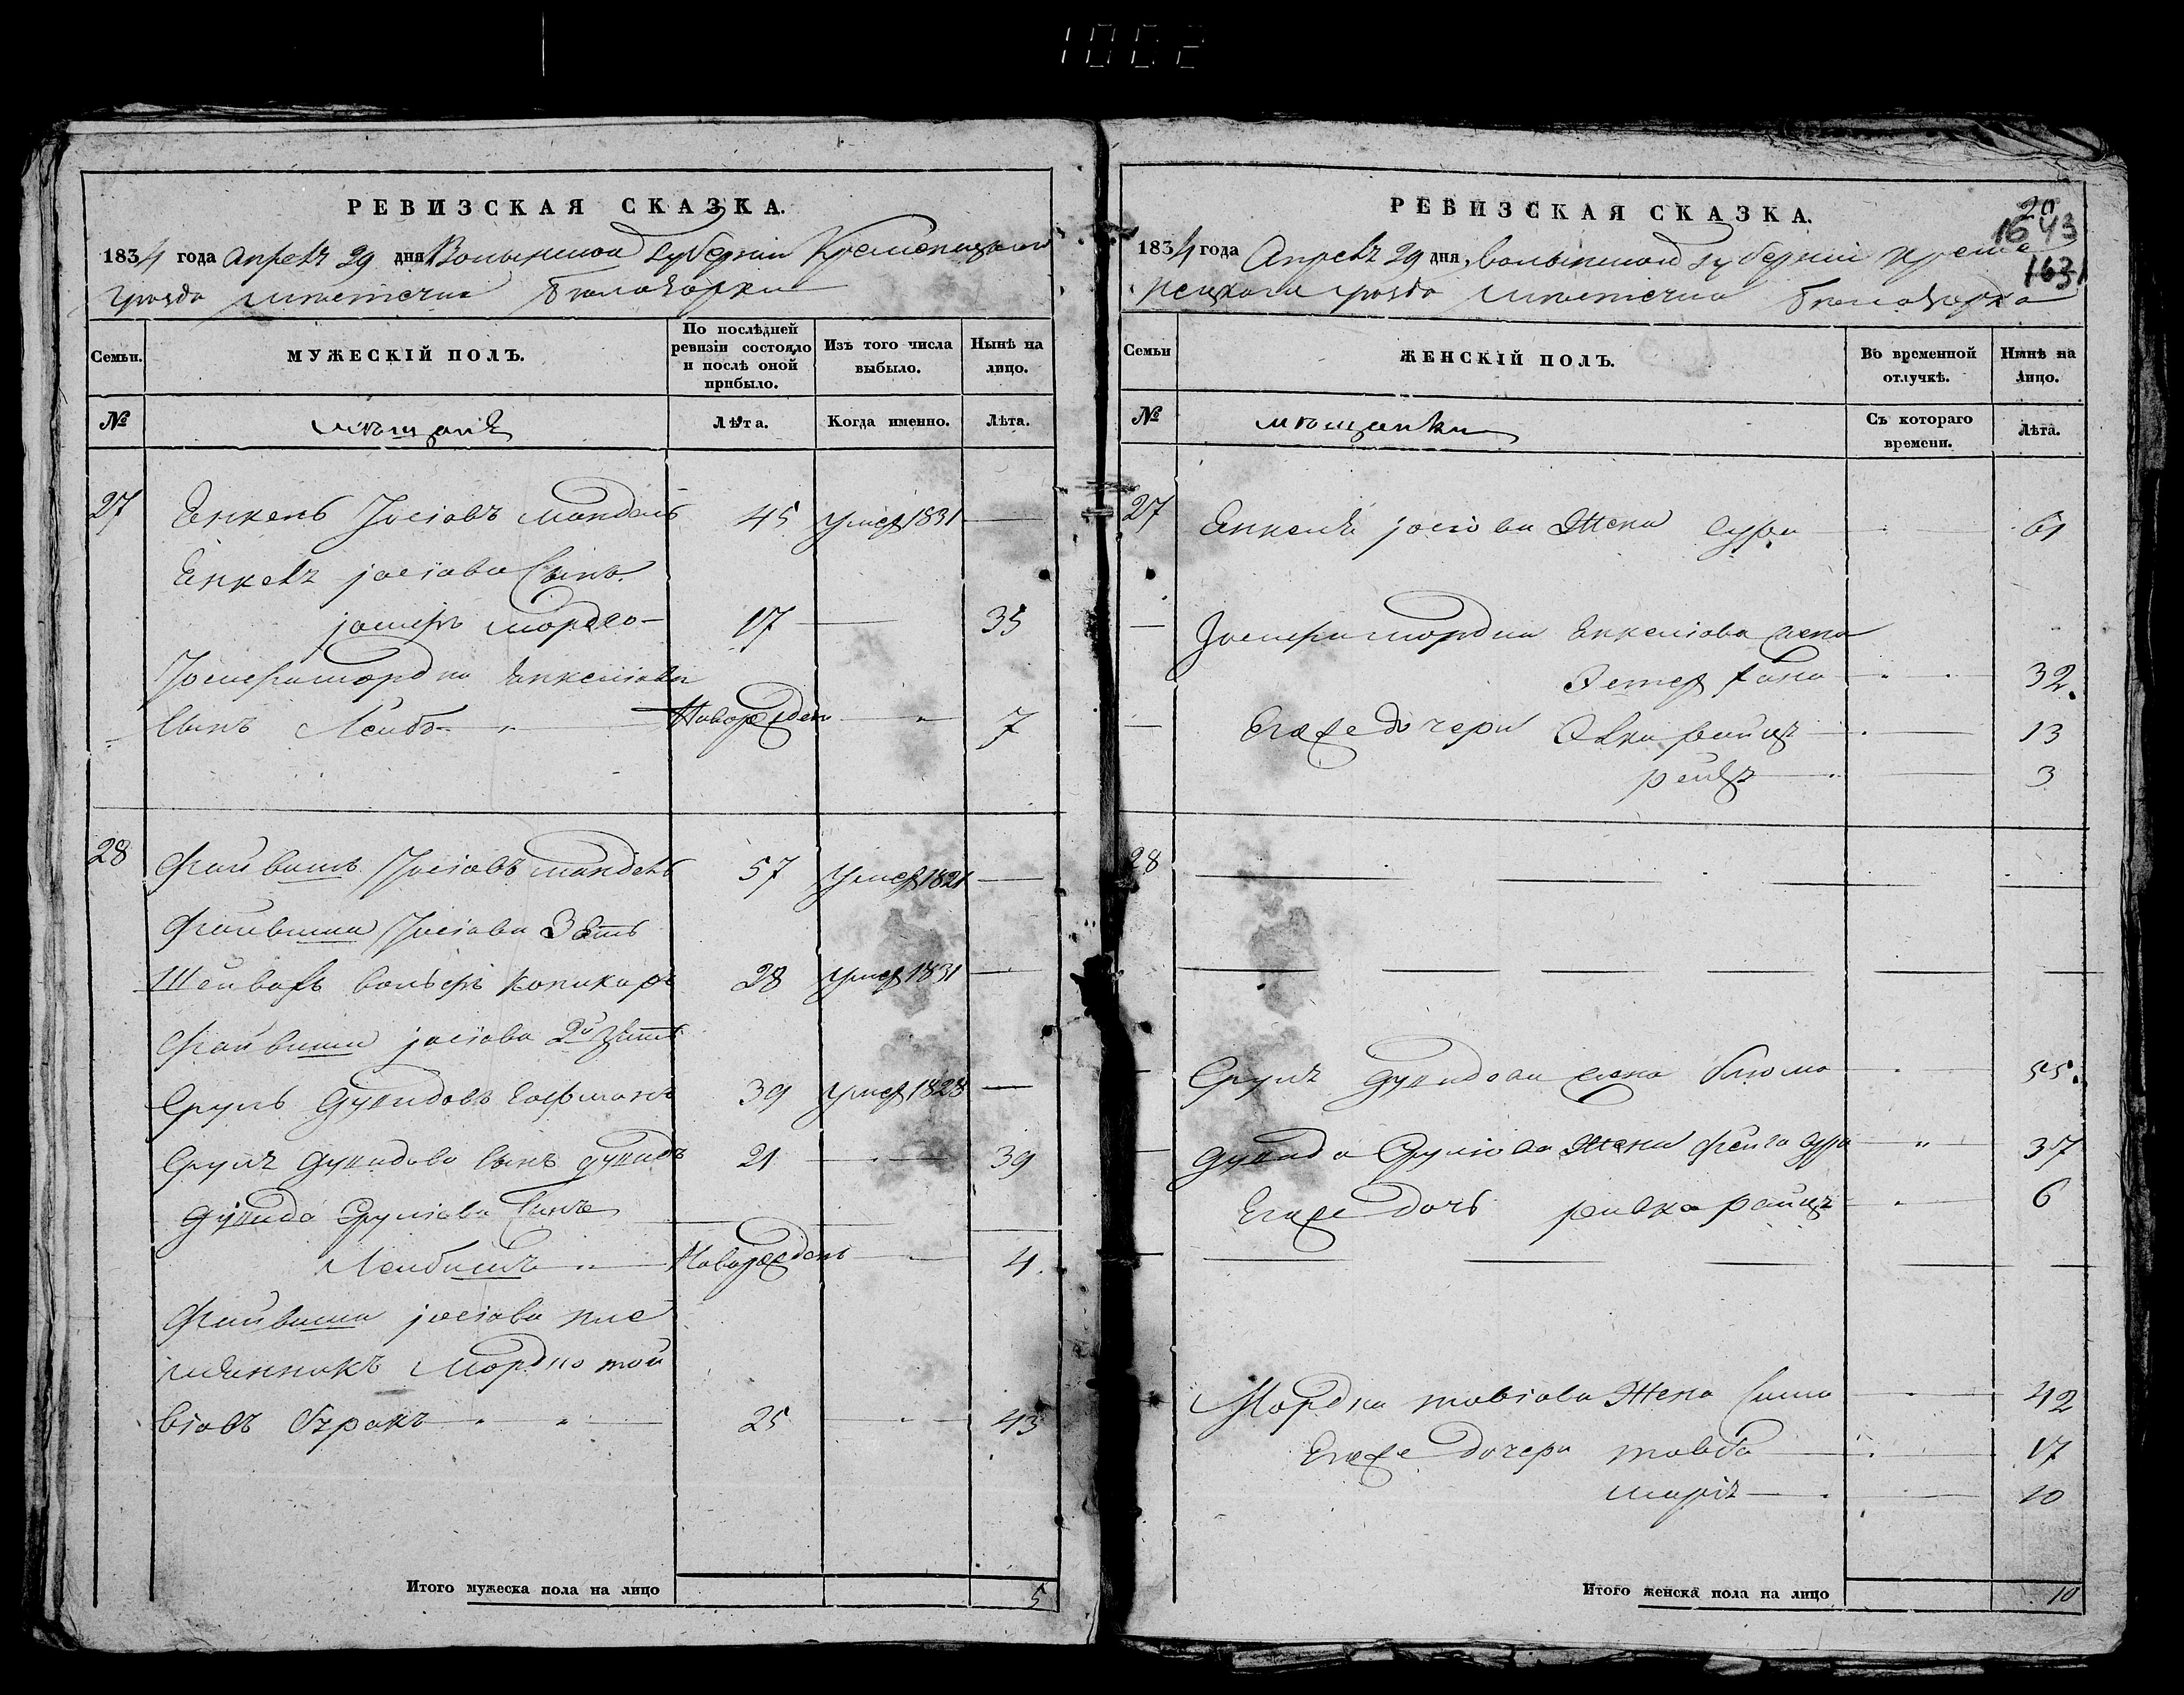 1002
РЕВИЗСКАЯ СКАЗКА.
1834 года Апреля 29 дня Волынской губернии Кременецкаго
уезда местечка Белозорки
Семьи.
МУЖЕСКІЙ ПОЛЪ.
По послѣдней ревизіи состояло и послѣ оной прибыло.
Изъ того числа выбыло.
Нынѣ на лицо.
№
мещане
Лѣта.
Когда именно.
Лѣта.
27 Янкель Иосiовъ Мандель 45 умер 1831
Янкеля иосiова сынъ
иосифъ мордко 17 35
Иосифа мордка Янкелiова
сынъ Лейба Новорожден 7
28 Файвишъ Иосiовъ Мандель 57 умер 1821
Файвиша Иосiова Зять
28 умер 1831
Файвиша иосiова 2й Зять
Сруль Дувидовъ Гофманъ 39 умер 1828
Сруля Дувидова сынъ дувидъ 21 39
Дувида Срулiова сынъ
Лейбишъ Новорожден 4
Файвиша иосiова пле
менникъ Мордко той
вiовъ 25 43
Итого мужеска пола на лицо 5
РЕВИЗСКАЯ СКАЗКА.
20
1643
163
1834 года Апреля 29 дня, волынской губернии креме
нецкаго уезда местечка Белозорка
Семьи
ЖЕНСКІЙ ПОЛЪ.
Во временной отлучкѣ.
Нынѣ на лицо.
№
мещанки
Съ котораго времени.
Лѣта.
27 Янкеля иосiова Жена сура 61
Иосифа мордка Янкелiова жена
Эстер хана 32
Егоже дочери райця 13
рейзя 3
28
Сруля Дувидова жена блюма 55
Дувида Срулiова Жена фейга сура 37
Егоже дочь ривка райця 6
Мордка товiова Жена сима 42
Егоже дочери товба 17
марiя 10
Итого женска пола на лицо 10